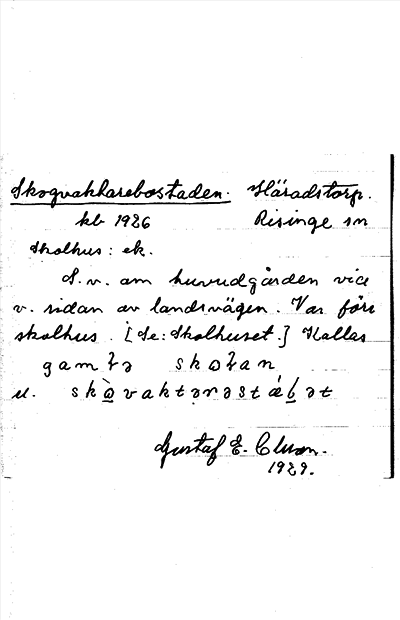 Skogvaktarebostaden. Häradstorp.
kb 1926 Risinge sn
Skolhus: ek.
S.v. om huvudgården vid
v. sidan av landsvägen. Var förr
skolhus. [Se: Skolhuset.] Kallas
gamɫə skoɫan
el. skɷvaktərəstä́ḷət
Gustaf E. Clason.
1929.